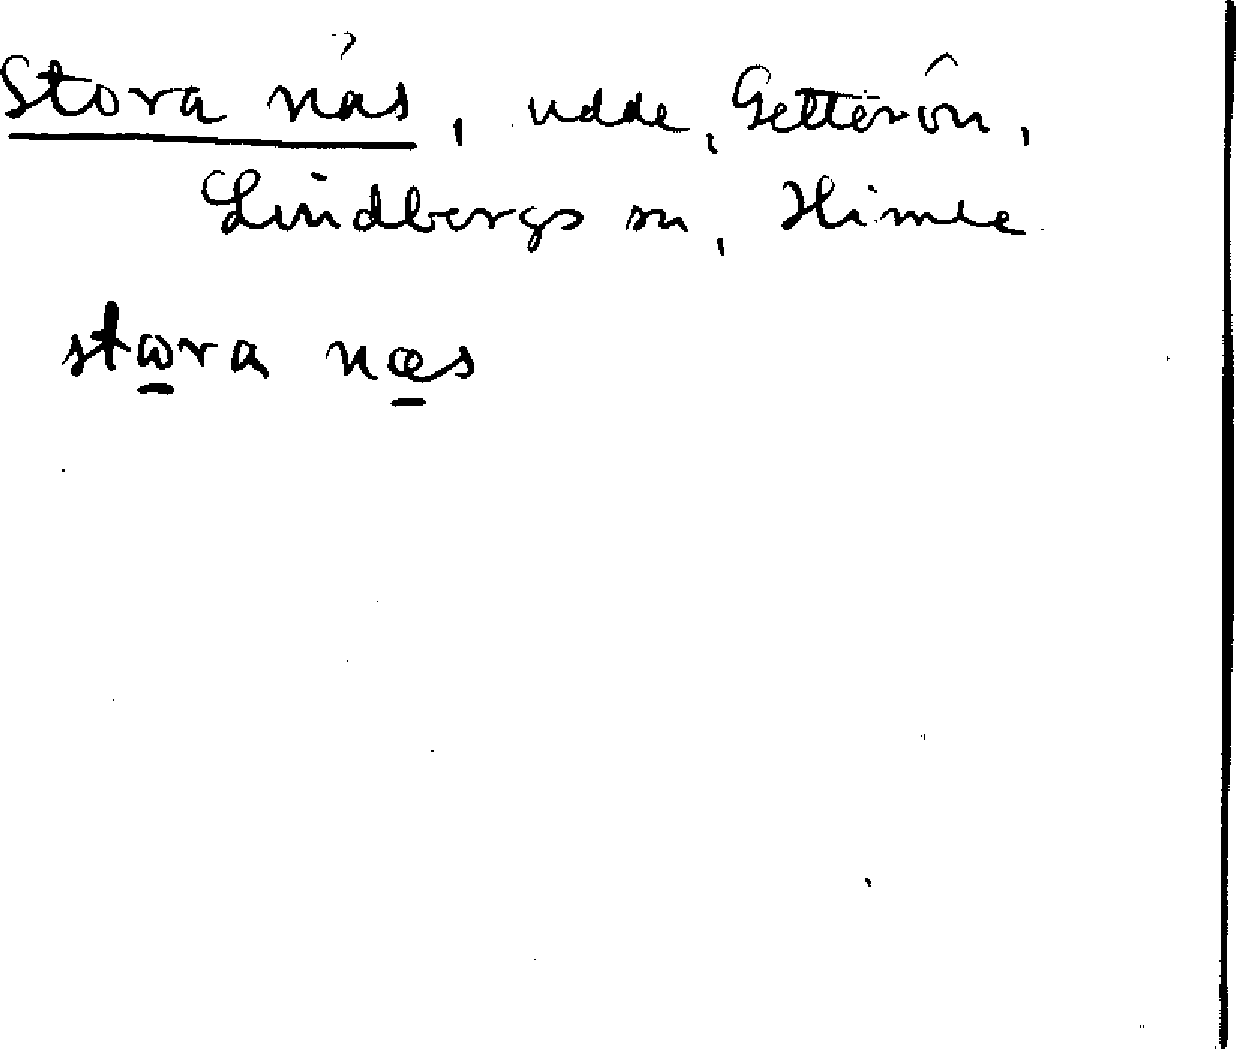 Stora näs, udde, Getterön,
Lindbergs sn, Himle
stora næs